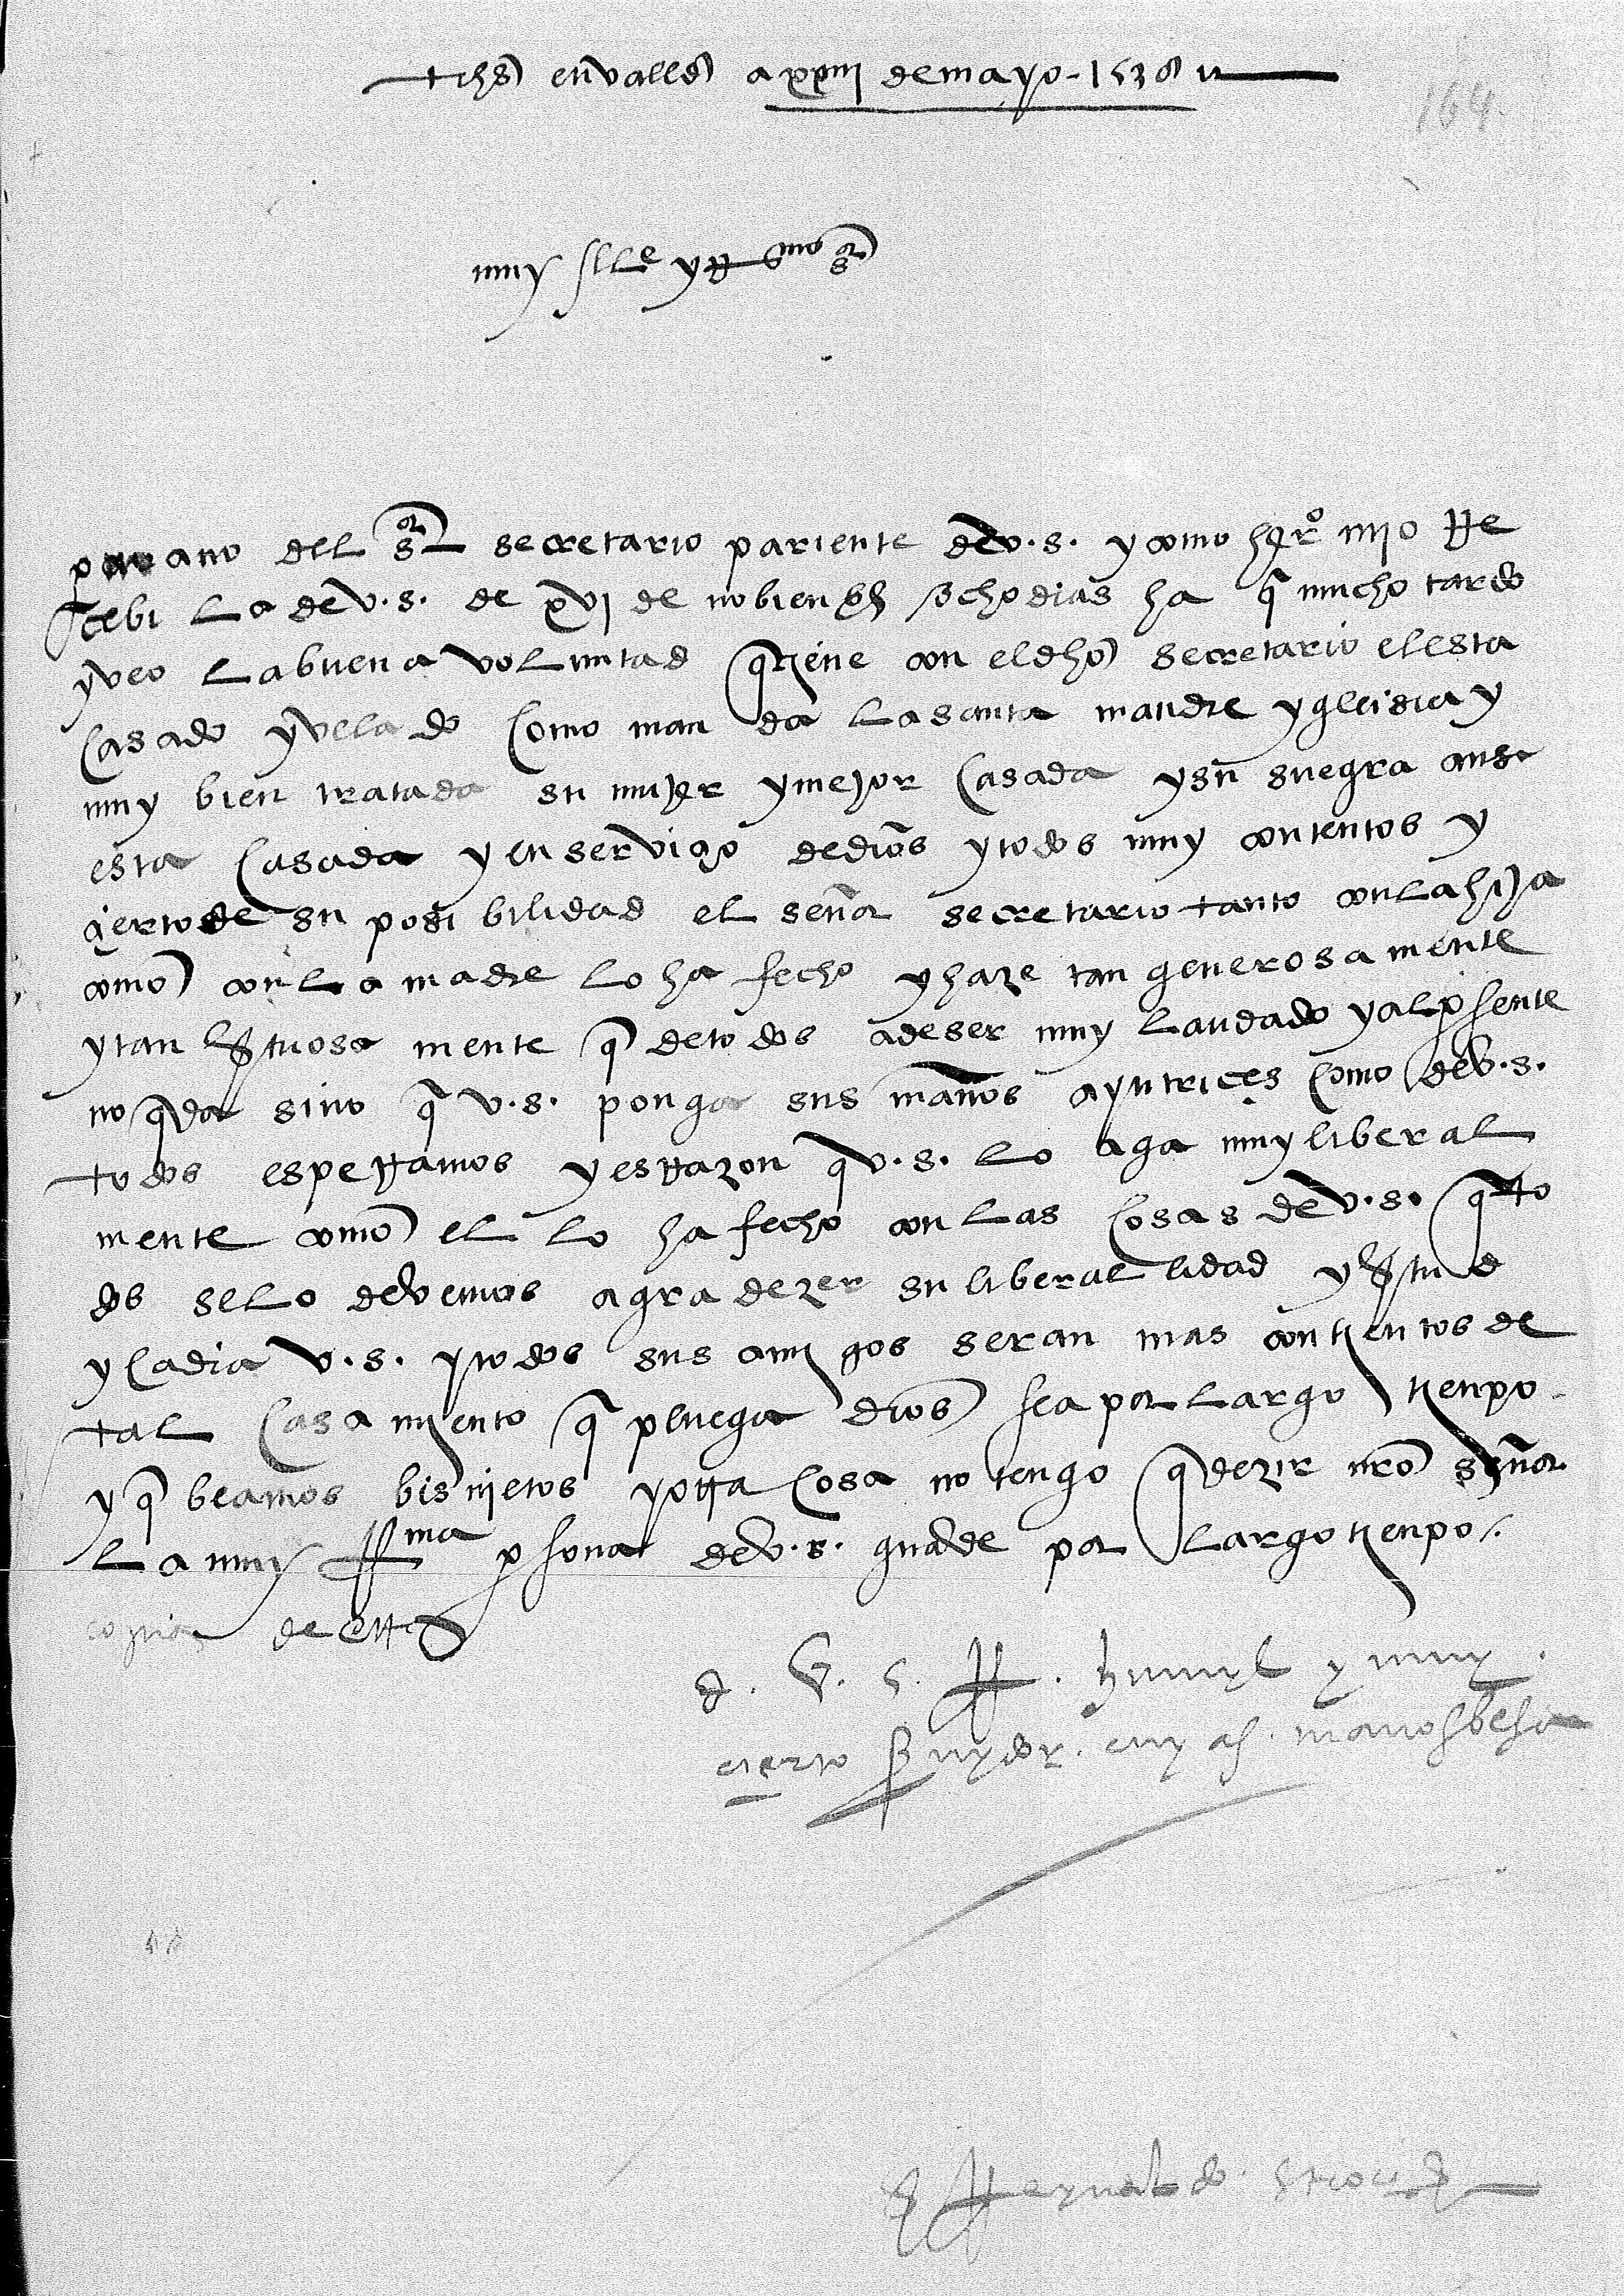 + Jhs en valld a xxiiii de mayo - 1536
164.
muy Ille y Rmo sor
por mano del sor secretario pariente de v.s. y como hijo mio Re
cebi la de v.s. de xvj de nobienbre ocho dias ha q mucho tardo
y veo la buena voluntad q tiene con el dho secretario el esta
casado y velado como manda la santa madre ygleisia y
muy bien tratada su mujer y mejor casada y su suegra ansi
esta casada y en serviçio de dios y todos muy contentos y
çierto de su posibilidad el señor secretario tanto con la hija
como con la madre lo ha fecho y haze tan generosamente
y tan virtuosa mente q de todos a de ser muy laudado y al psente
no qda sino q v.s. ponga sus manos como de v.s.
todos esperramos y es rrazon q v.s. lo aga muy liberal
mente como el lo ha fecho con las cosas de v.s. q to
dos se lo devemos agradezer su liberallidad y virtud
y cadia v.s. y todos sus amigos seran mas contientos de
tal casamiento q pluega a dios sea por largo tienpo
y q beamos bisnietos y otra cosa no tengo q dezir nro señor
la muy Rma psona de v.s. guarde por largo tienpo
copia de otra
d. V. S. R. humyl y muy
cierto servydor. cuyas. manos besa
Reynaldo